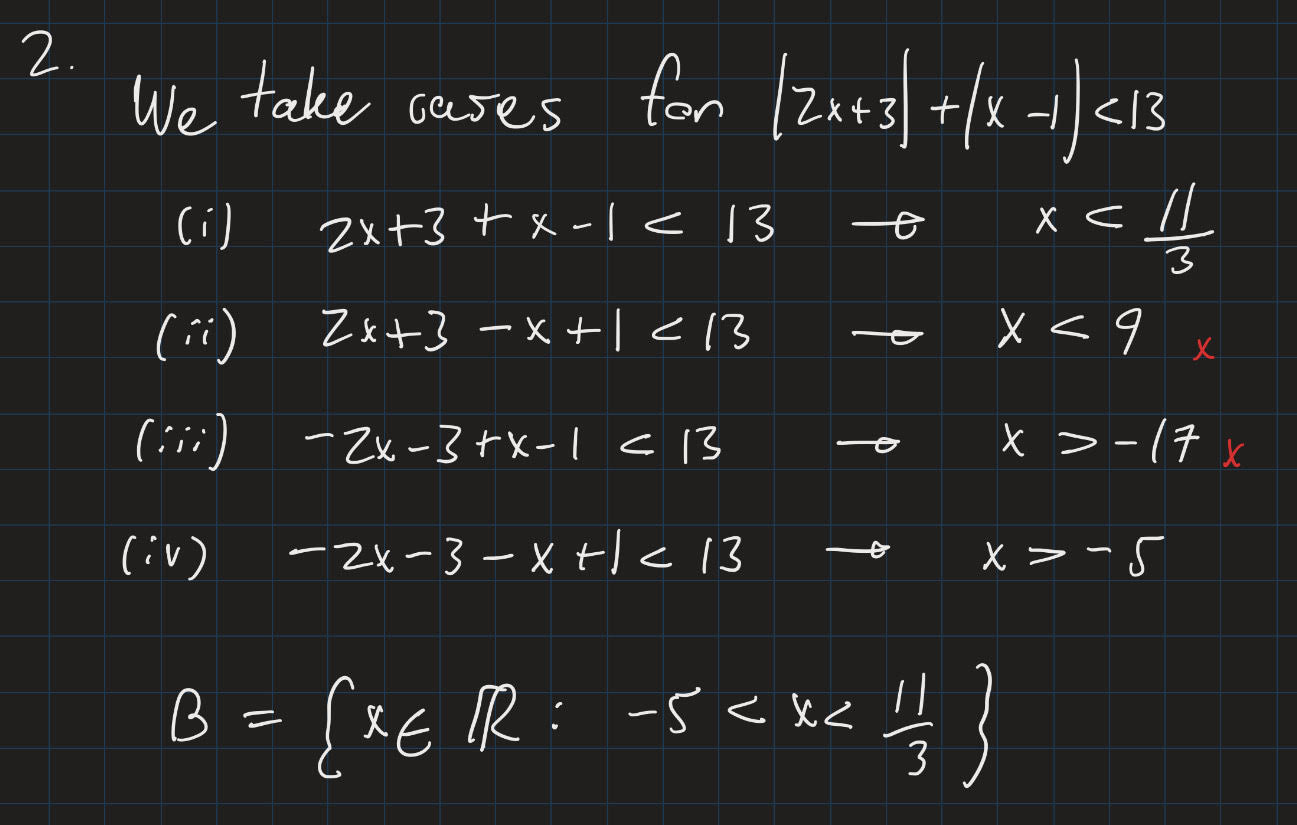 2.
We take cases for |2x+3| + |x-1| < 13
(i) 2x+3 + x-1 < 13 → x < 11/3
(ii) 2x+3 - x+1 < 13 → x < 9 x
(iii) -2x-3+x-1 < 13 → x > -17 x
(iv) -2x-3-x+1 < 13 → x > -5
B = {x ∈ ℝ : -5 < x < 11/3}